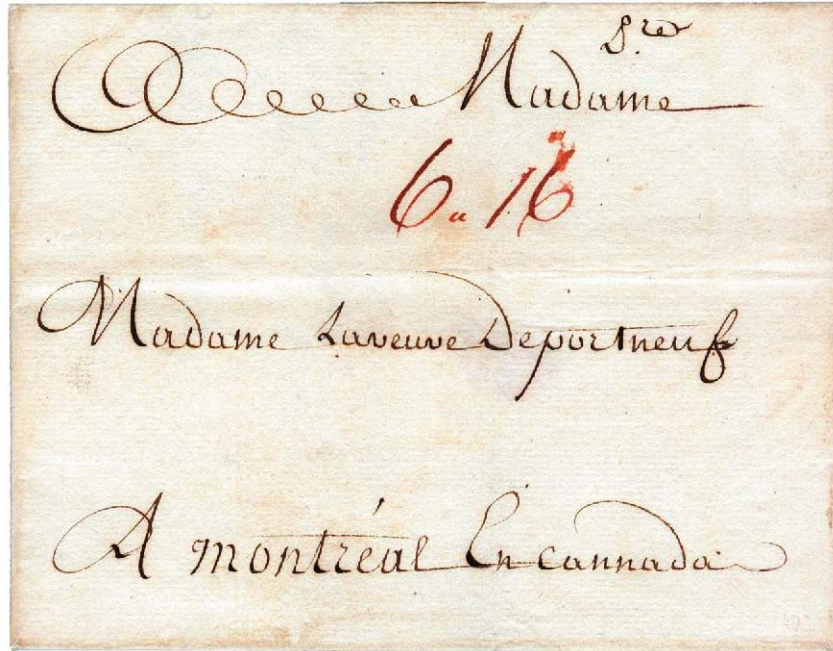 Madame
6 " 16
Madame Laveuve Deportneuf
A montréal En cannada